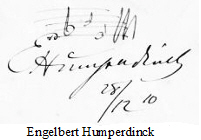 E. Humperdinck
28/12 10
Engelbert Humperdinck